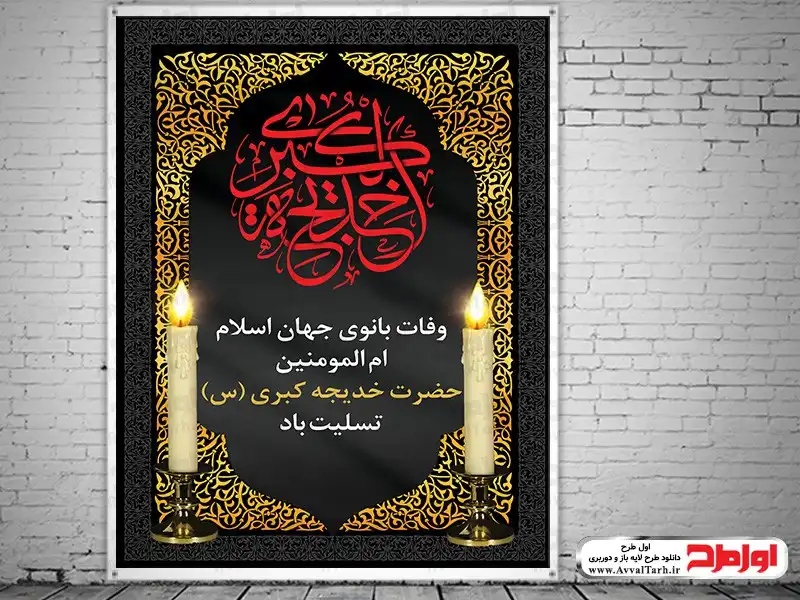 خدیجة الکبری
وفات بانوی جهان اسلام
ام المومنین
حضرت خدیجه کبری (س)
تسلیت باد
اول طرح
دانلود طرح لایه باز و دوربری
www.AvvalTarh.ir
اول طرح